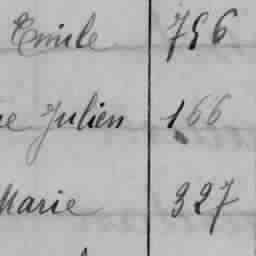 Emile 756
Julien 166
Marie 327